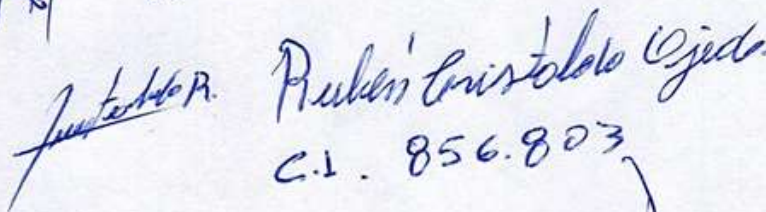 Rubén Cristaldo Ojeda
C.I. 856.803